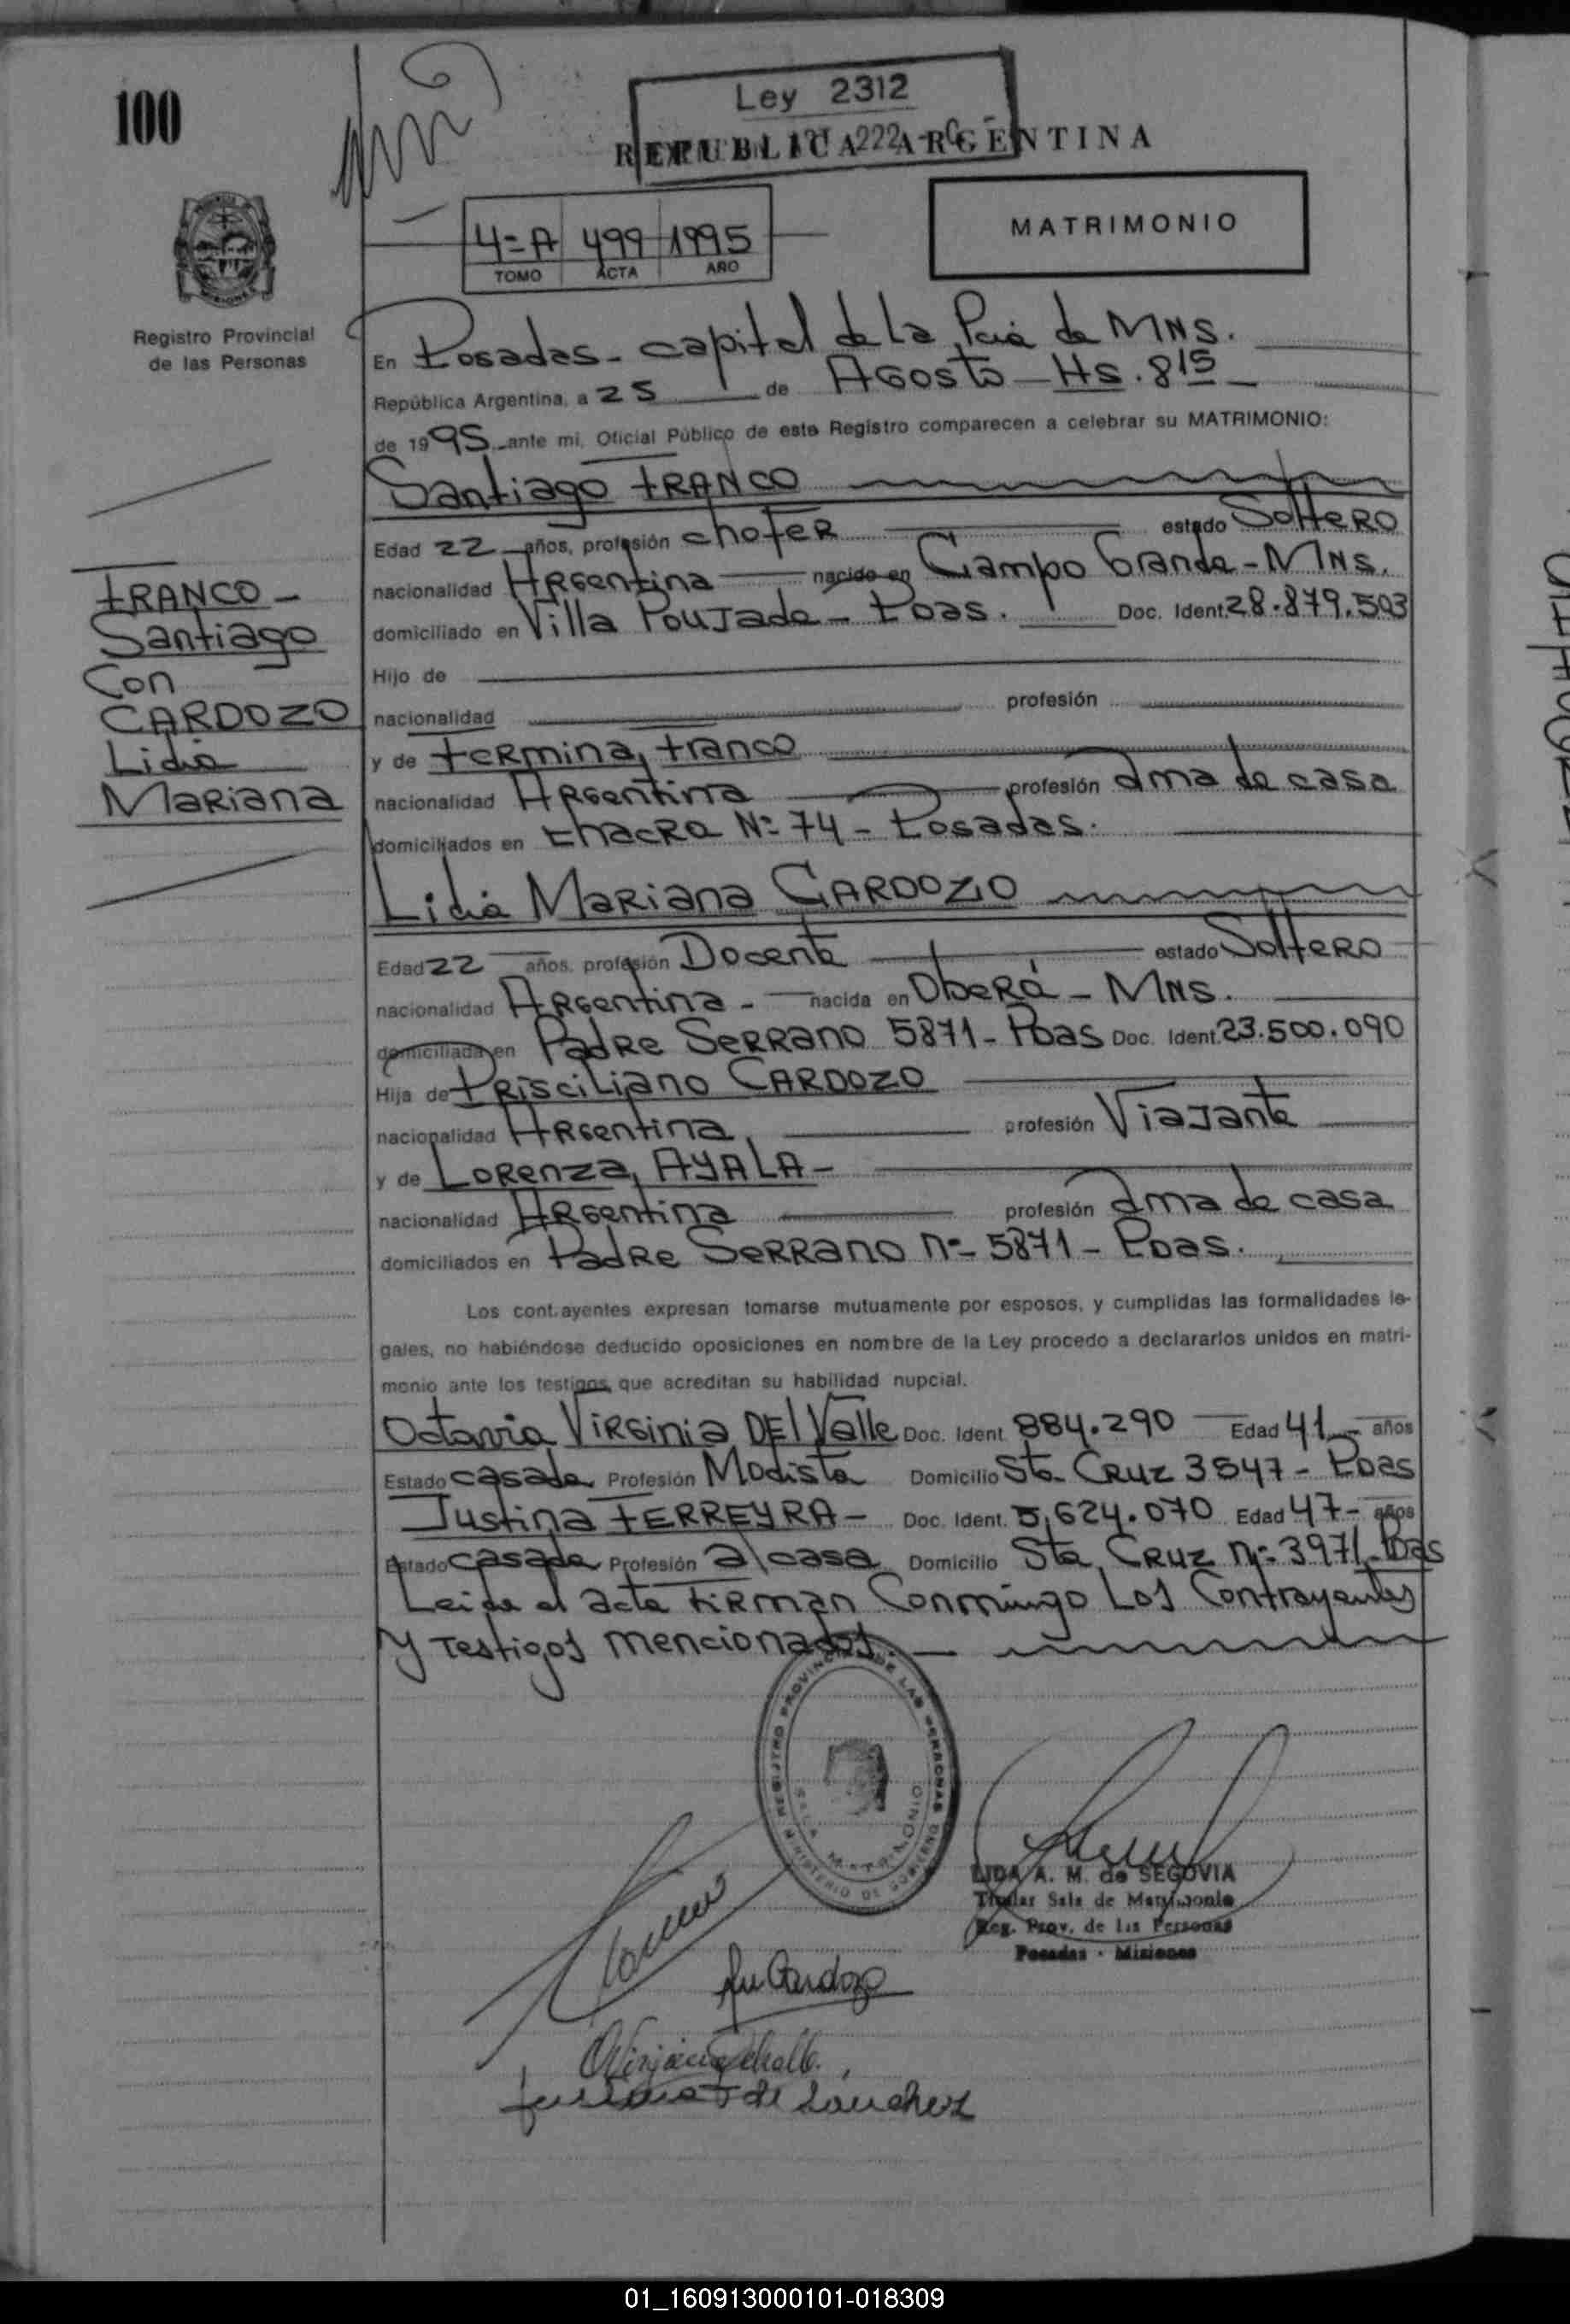 100
Ley 2312
REPUBLICA ARGENTINA
4=A 499 1995
TOMO ACTA AÑO
MATRIMONIO
Registro Provincial
de las Personas
En Posadas - capital de La Pcia de MNS.
República Argentina, a 25 de AGosto - Hs. 815
de 1995 ante mi, Oficial Público de este Registro comparecen a celebrar su MATRIMONIO:
Santiago FRANCO
Edad 22 años, profesión choFeR estado SolteRO
nacionalidad ARGentina nacido en Campo Grande - MNS.
domiciliado en Villa PouJade - Pdas. Doc. Ident. 28.879.503
Hijo de
nacionalidad profesión
y de FeRmina, Franco
nacionalidad ARGentina profesión ama de casa
domiciliados en chacRa Nº 74 - Posadas.
FRANCO -
Santiago
Con
CARDOZO
Lidia
MaRiana
Lidia MaRiana CARDOZO
Edad 22 años, profesión Docente estado SolteRO
nacionalidad ARGentina - nacida en ObeRá - MNS.
domiciliada en PadRe SeRRano 5871 - Pdas Doc. Ident. 23.500.090
Hija de PRisciliano CARDOZO
nacionalidad ARGentina, profesión ViaJante
y de LoRenza, AYALA -
nacionalidad ARGentina profesión ama de casa
domiciliados en PadRe SeRRano nº 5871 - Pdas.
Los contrayentes expresan tomarse mutuamente por esposos, y cumplidas las formalidades le-
gales, no habiéndose deducido oposiciones en nombre de la Ley procedo a declararlos unidos en matri-
monio ante los testigos que acreditan su habilidad nupcial.
Octavia ViRGinia DEl Valle Doc. Ident. 884.290 Edad 41 años
Estado casada Profesión Modista Domicilio Sta CRuz 3547 - Pdas
Justina FERREYRA - Doc. Ident. 5,624.070 Edad 47 - años
Estado casada Profesión a/casa Domicilio Sta CRuz nº 3971 - Pdas
Leida el acta FiRman Conmingo Los Contrayentes
y Testigos mencionados. -
REGISTRO PROVINCIAL DE LAS PERSONAS
SALA MATRIMONIO
MINISTERIO DE GOBIERNO
LIDA A. M. de SEGOVIA
Titular Sala de Matrimonio
Reg. Prov. de las Personas
Posadas - Misiones
Cardozo
de Sánchez
01_160913000101-018309